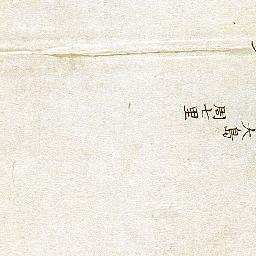 大島
周七里